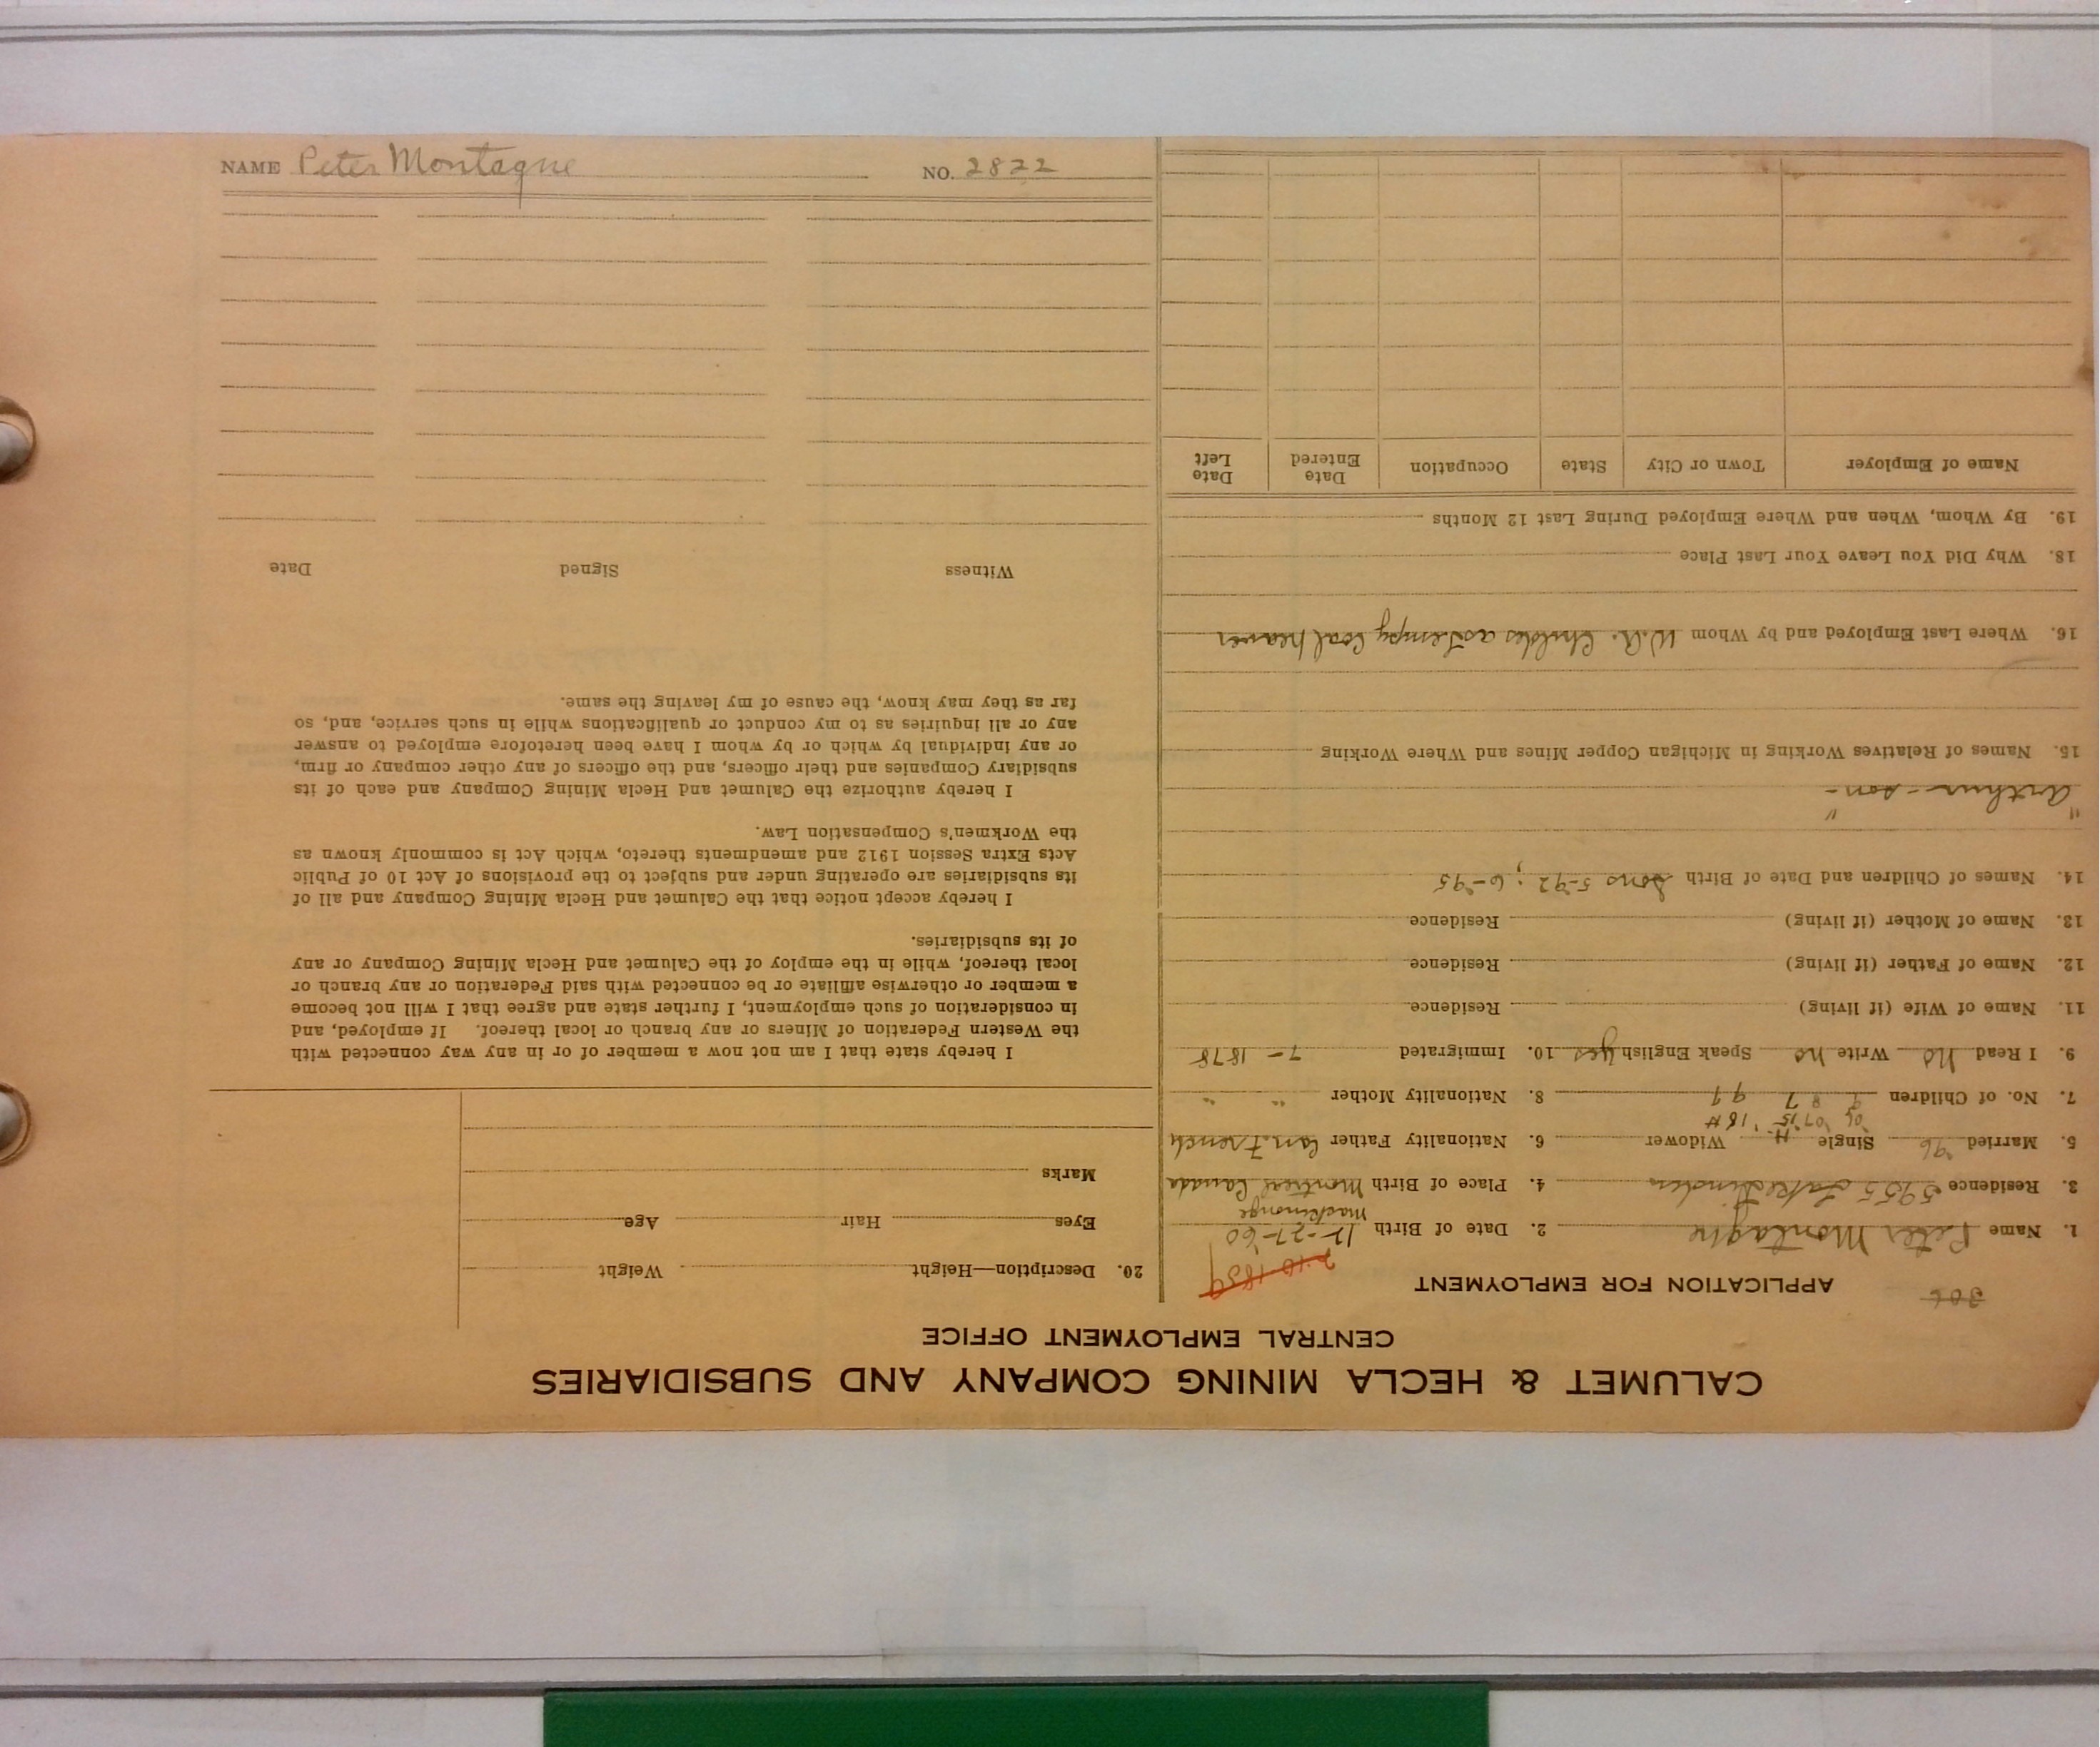 CALUMET & HECLA MINING COMPANY AND SUBSIDIARIES
CENTRAL EMPLOYMENT OFFICE
306
APPLICATION FOR EMPLOYMENT
2-10-1859
1. Name Peter Montague 2. Date of Birth 12-27-60
3. Residence 5955 Lake Linden 4. Place of Birth Montreal Canada
5. Married '96 Single Widower 6. Nationality Father Can. French
7. No. of Children 8. Nationality Mother " "
9. I Read No Write No Speak English yes 10. Immigrated 7- 1878
11. Name of Wife (if living) Residence
12. Name of Father (if living) Residence
13. Name of Mother (if living) Residence
14. Names of Children and Date of Birth Sons 5-92 ; 6-95
" "
Arthur - son -
15. Names of Relatives Working in Michigan Copper Mines and Where Working
16. Where Last Employed and by Whom W.A. Childs as tempy Coal heaver
18. Why Did You Leave Your Last Place
19. By Whom, When and Where Employed During Last 12 Months
Name of Employer Town or City State Occupation Date Entered Date Left
20. Description—Height Weight
Eyes Hair Age
Marks
I hereby state that I am not now a member of or in any way connected with
the Western Federation of Miners or any branch or local thereof. If employed, and
in consideration of such employment, I further state and agree that I will not become
a member or otherwise affiliate or be connected with said Federation or any branch or
local thereof, while in the employ of the Calumet and Hecla Mining Company or any
of its subsidiaries.
I hereby accept notice that the Calumet and Hecla Mining Company and all of
its subsidiaries are operating under and subject to the provisions of Act 10 of Public
Acts Extra Session 1912 and amendments thereto, which Act is commonly known as
the Workmen's Compensation Law.
I hereby authorize the Calumet and Hecla Mining Company and each of its
subsidiary Companies and their officers, and the officers of any other company or firm,
or any individual by which or by whom I have been heretofore employed to answer
any or all inquiries as to my conduct or qualifications while in such service, and, so
far as they may know, the cause of my leaving the same.
Witness Signed Date
NAME Peter Montague NO. 2822